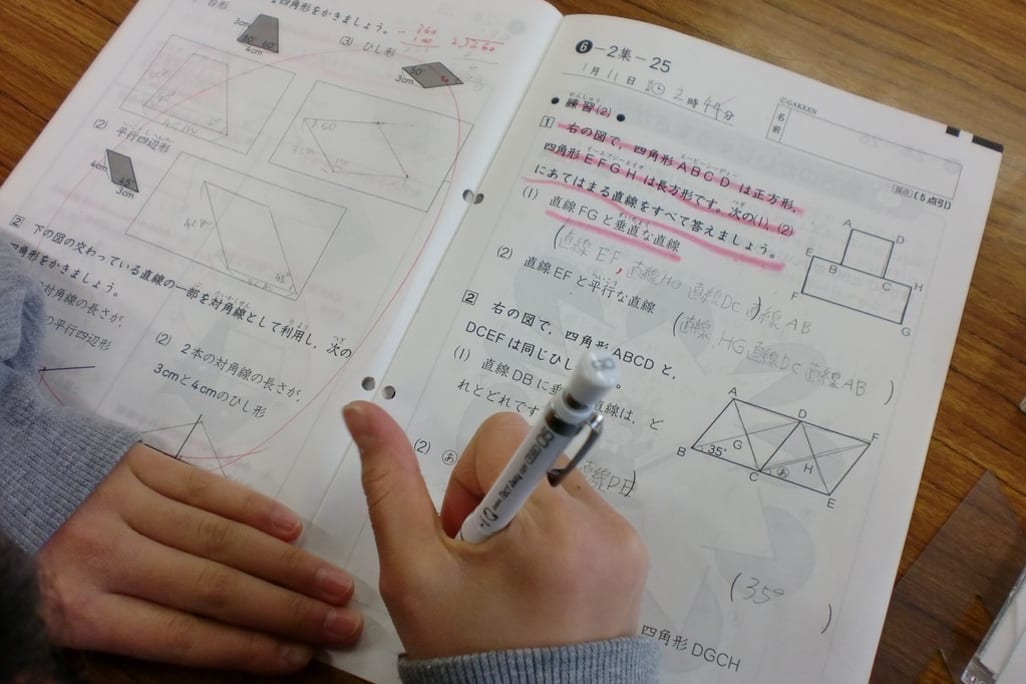 四角形をかきましょう。
3cm
60° 60°
4cm
(3) ひし形
50°
3cm
(2) 平行四辺形
4cm
45°
3cm
2 下の図の交わっている直線の一部を対角線として利用し、次の
角形をかきましょう。
対角線の長さが、
の平行四辺形
(2) 2本の対角線の長さが、
3cmと4cmのひし形
6-2集-25
1月11日 2時44分
©GAKKEN
名前
採点 (5点引)
● 練習(2) ●
1 右の図で、四角形ABCDは正方形、
四角形EFGHは長方形です。次の(1)、(2)
にあてはまる直線をすべて答えましょう。
(1) 直線FGと垂直な直線
(直線EF, 直線HG 直線DC 直線AB
(2) 直線EFと平行な直線
(直線, HG 直線DC 直線AB)
A
D
E
B
C
H
F
G
2 右の図で、四角形ABCDと、
DCEFは同じひし
(1) 直線DBに
直線は、ど
れとどれです
直線DE)
(2) あ
A
D
F
B
35°
G
C
あ
H
E
(35°)
四角形DGCH